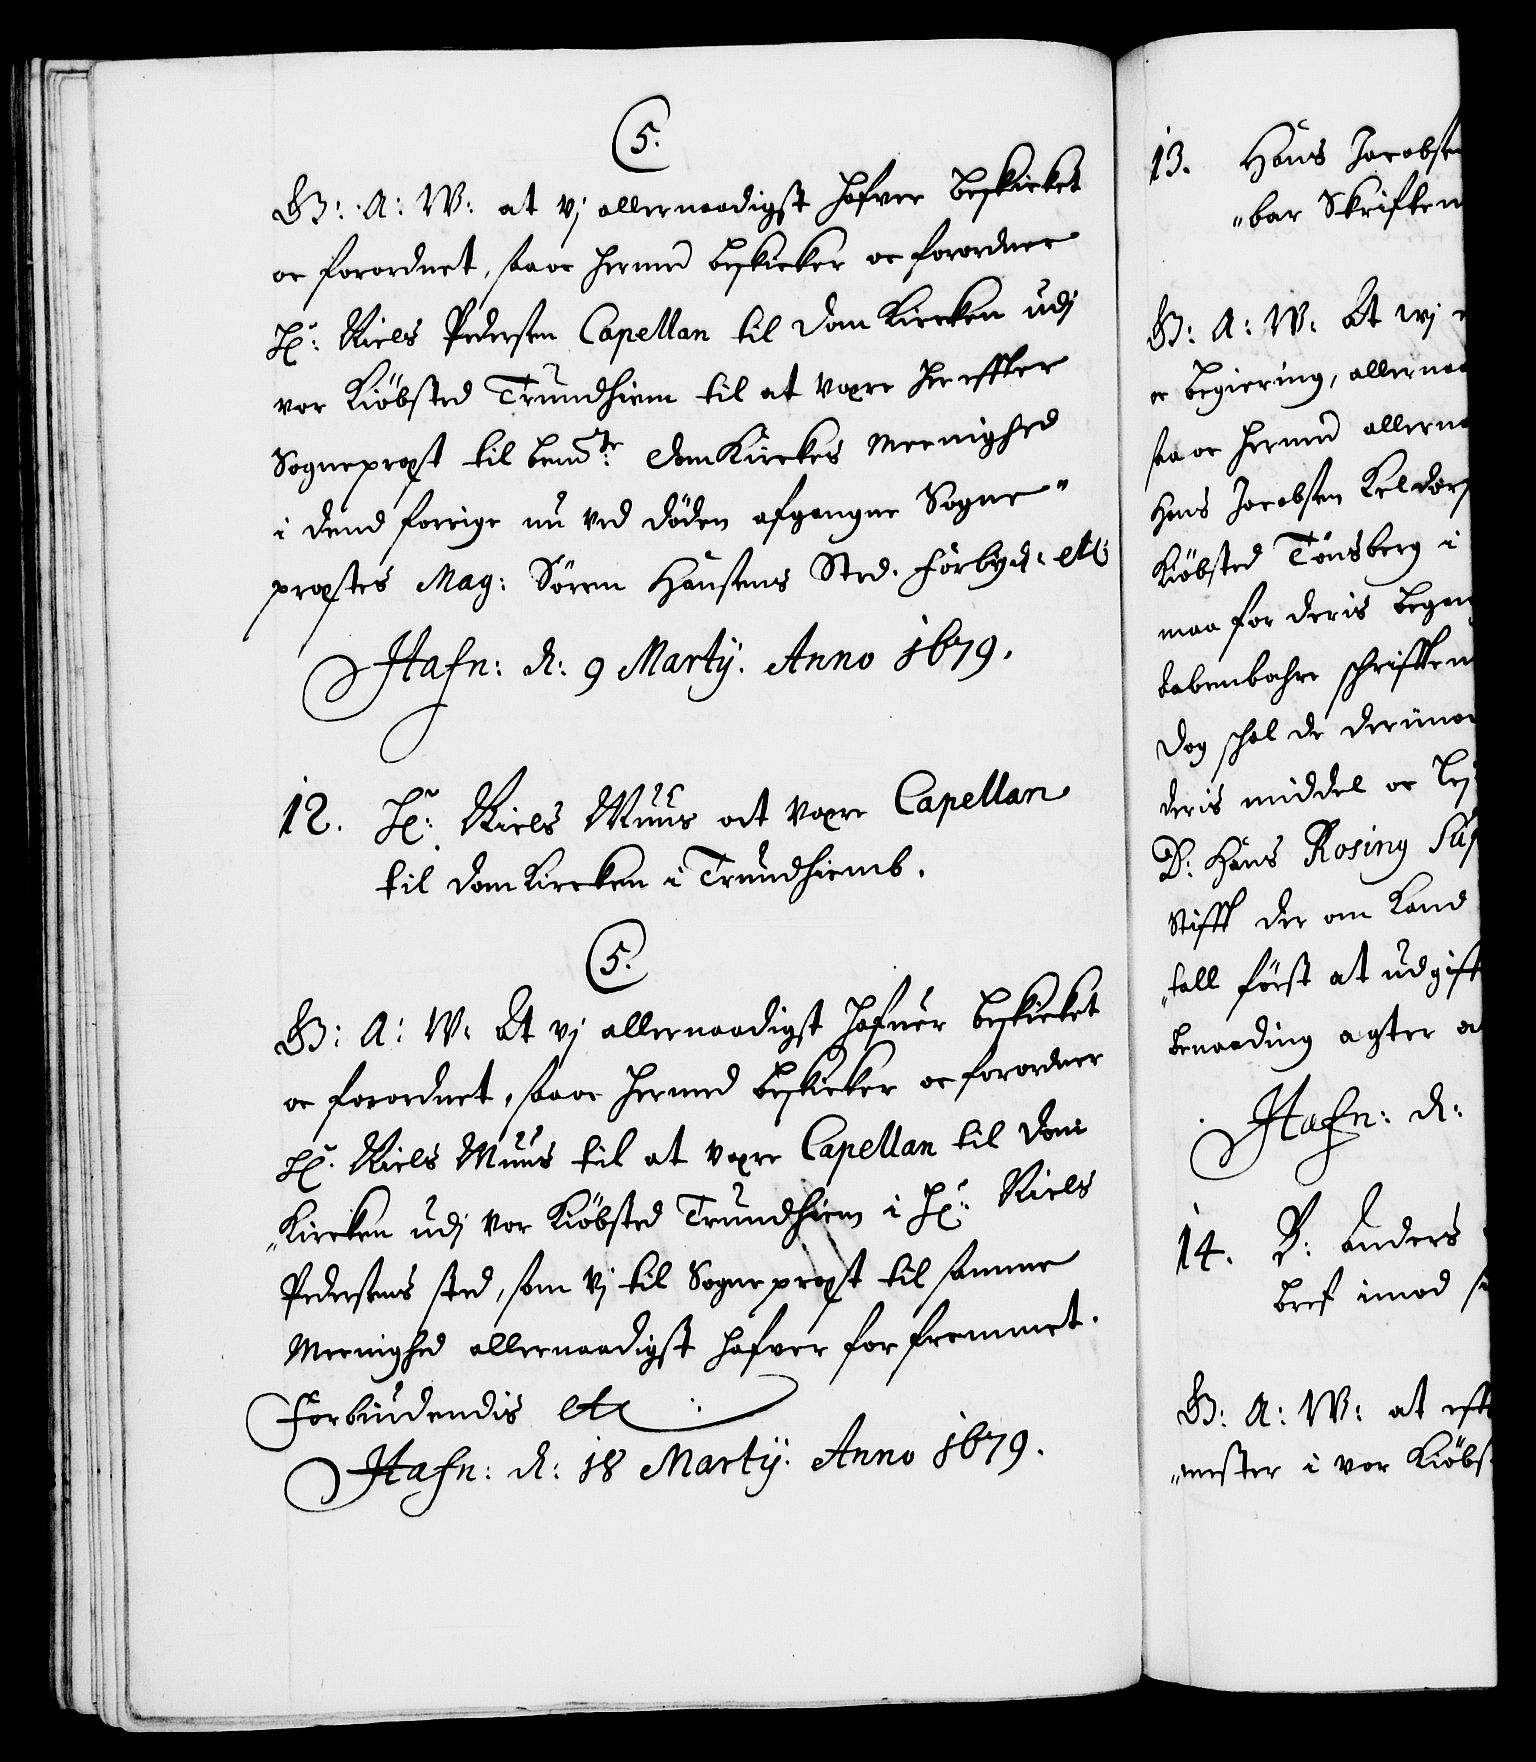 5.
G: A: W: at vj allernaadigst hafver beskicket
oc forordnet, saa oc hermed beskicker oc forordner
Hr: Niels Pedersen Capellan til Dom Kircken udj
vor Kiöbsted Trundhiem til at være hereffter
Sogneprest til bemte: DomKirckes Meenighed
i dend forrige nu ved döden afgangne Sogne"
prestes Mag: Sören Hansens Sted. Forbyd: etc
Hafn: d: 9 Martij. Anno 1679.
12. Hr: Niels Muus at være Capellan
til Dom Kircken i Trundhiemb.
5.
G: A: W: At vj allernaadigst hafuer beskicket
oc forordnet, saa oc hermed beskicker oc forordner
Hr. Niels Muus til at være Capellan til Dom
"Kircken udj vor Kiöbsted Trundhiem i Hr: Niels
Pedersens sted, som vj til Sogneprest til samme
Meenighed allernaadigst hafver forfremmet.
Forbiudendis etc
Hafn: d: 18 Martij. Anno 1679.
13. Hans Jacobsen
"bar Skriften
G: A: W: At wj
oc begiering, allernaa
saa oc hermed allerna
Hans Jacobsen
Kiöbsted Tönsberg i
maa for deris
aabenbahre schrifften
dog schal de derimod
deris middel oc
D: Hans Rosing
Stifft der om Land
"tall först at udgift
benaading agter
Hafn: d:
14. D: Anders
bref imod
G: A: W: at eft
"mester i vor Kiöbs